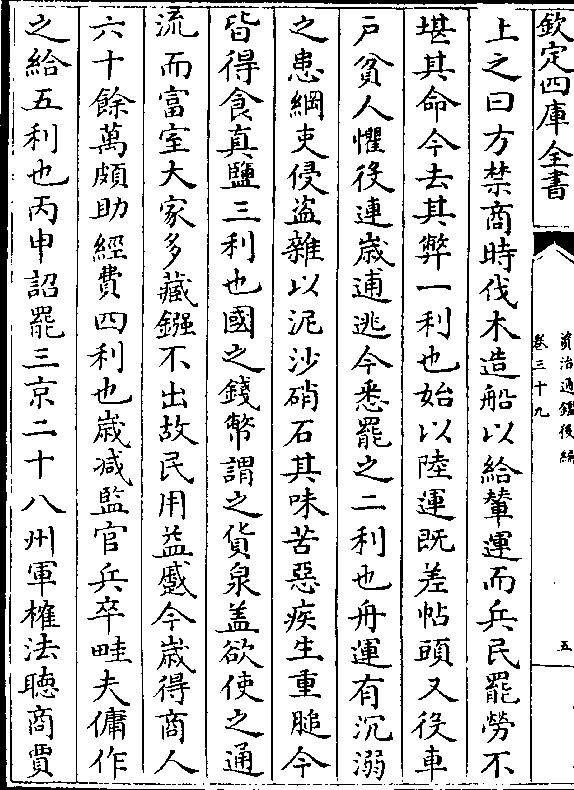 欽定四庫全書
資治通鑑後編
卷三十九
五
上之曰方禁商時伐木造船以給輦運而兵民罷勞不
堪其命今去其弊一利也始以陸運既差帖頭又役車
戶貧人懼役連歲逋逃今悉罷之二利也舟運有沉溺
之患綱吏侵盜雜以泥沙硝石其味苦惡疾生重膇今
皆得食真鹽三利也國之錢幣謂之貨泉蓋欲使之通
流而富室大家多藏鏹不出故民用益蹙今歲得商人
六十餘萬頗助經費四利也歲减監官兵卒畦夫傭作
之給五利也丙申詔罷三京二十八州軍榷法聼商賈